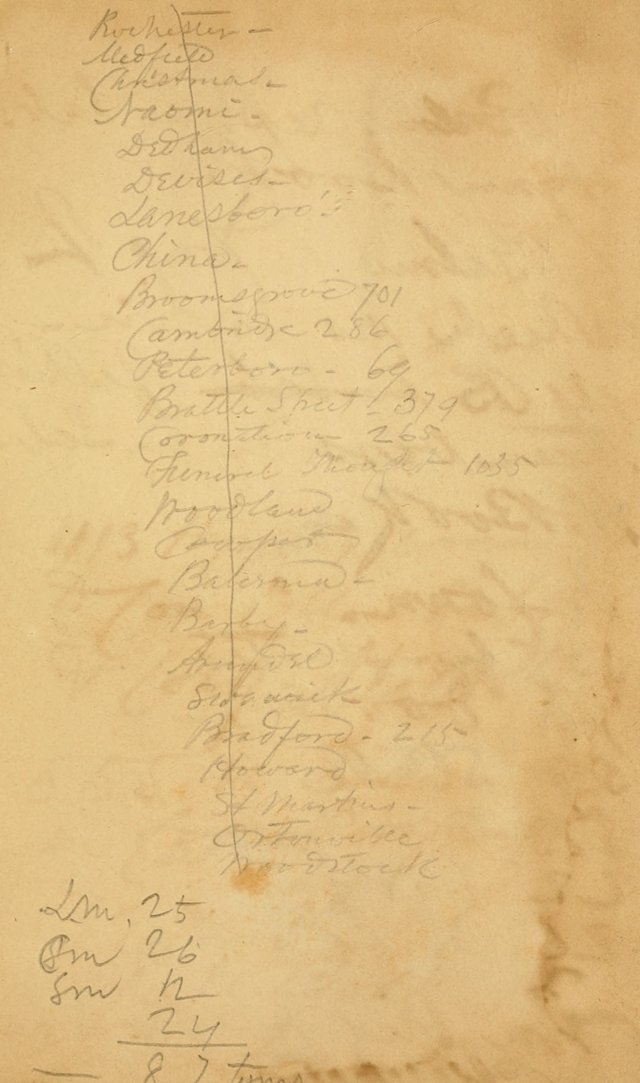 Rochester -
Medfield
Christmas -
Naomi -
Dedham
Devises -
Lanesboro'
China -
Broomsgrove 701
Cambridge 286
Peterboro - 69
Brattle Street - 379
Coronation - 265
Funeral Thought 1035
Woodland
Cowper
Balerma -
Barby -
Arundel
Swanwick
Bradford - 215
Howard
St Martins -
Ortonville
Woodstock
Lm. 25
Cm 26
Sm 12
24
87 tunes